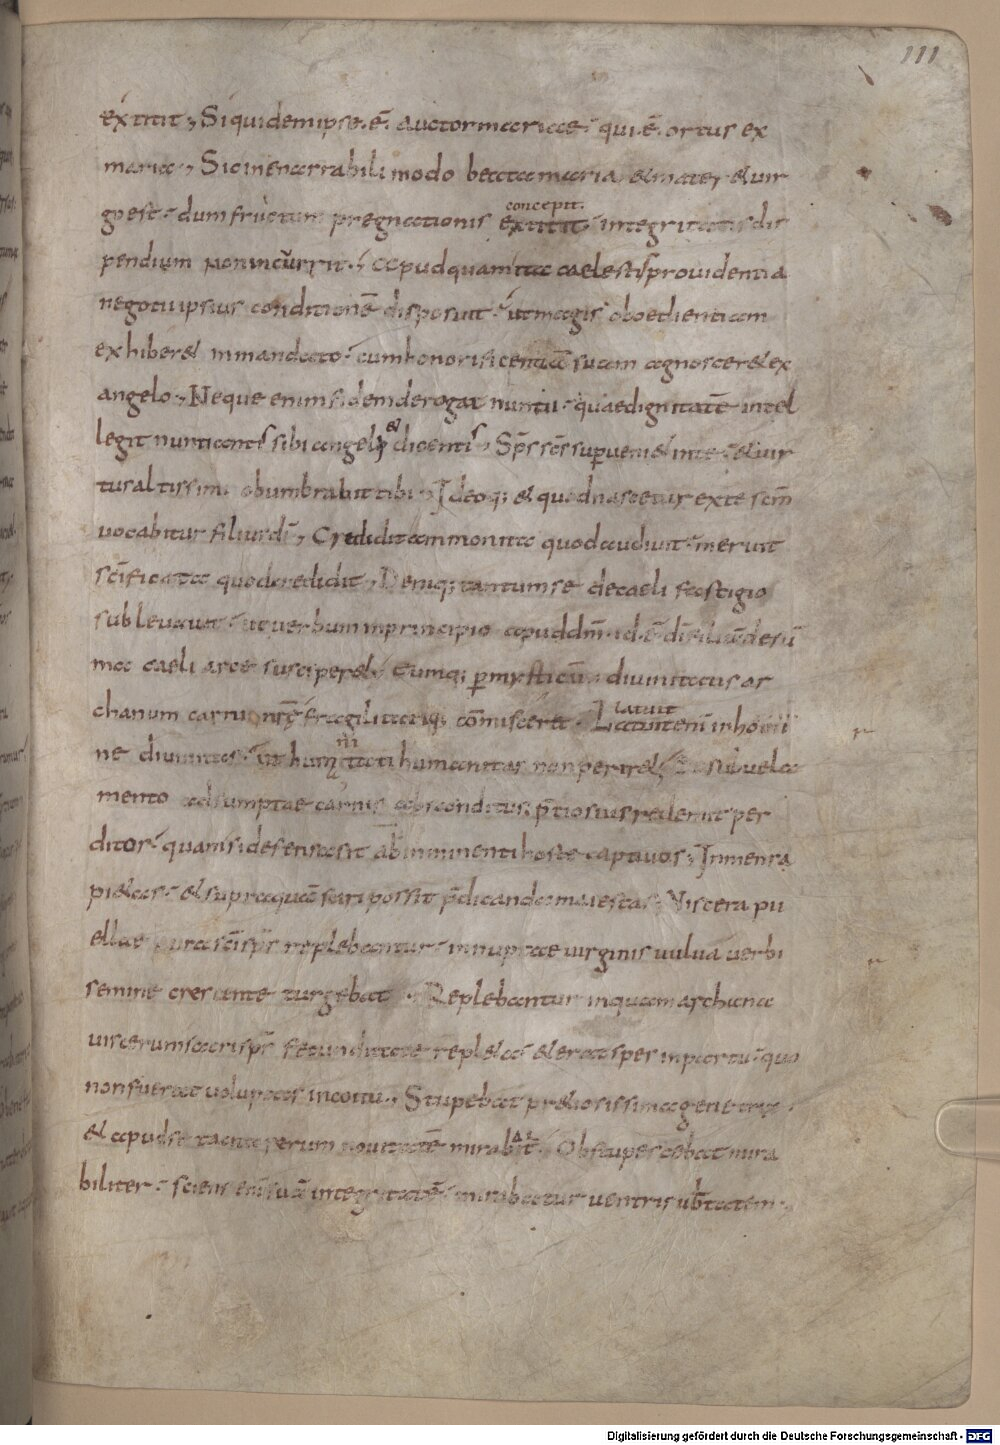 111
extitit; Siquidem ipse .ē. auctor mariae qui .ē. ortus ex
maria; Sic inenarrabili modo beata maria et mater et uir
go est. dum fructum pregnationis extitit. integritatis dis
concepit.
pendium non incurrit; Apud quam ita caelestis prouidentia
negotii ipsius conditionē disposuit. ut magis oboedientiam
exhiberet in mandato. cum honorificentiā suam agnosceret ex
angelo; Neque enim fidem derogat nuntii. quae dignitatē intel
legit nuntiantis sibi angeli et dicentis; Sp̄s sc̄s superueniet in te. et uir
tus altissimi obumbrabit tibi; Ideoq; et quod nascetur ex te sc̄m
uocabitur filius dī; Credidit ammonita quod audiuit. meruit
sc̄ificata quod credidit; Deniq; tantum se de caeli fastigio
subleuauit. ut uerbum in principio apud dm̄. id .ē. dī filiū de sū
ma caeli arce susciperet; Cumq; p mysticū diuinitatus ar
chanum carni nrę̄ fragilitatiq; cōmisceret. Latuit enī in homi
latuit
ne diuinitas. ut humanitati humanitas non periret; sub uela
mento adsumptae carnis absconditus. p̄tiosius redemit per
ditos. quam si defensasit ab imminenti hoste captiuos; Inmensa
pietas. et supra quā fari possit p̄dicanda maiestas; Viscera pu
ellae pura sc̄i sp̄s replebantur. innuptae uirginis uulua uerbi
semine crescente turgebat. Replebantur inquam archana
uiscerum sacri sp̄s fecunditate repleta. et erat spes in partu. quo
non fuerat uoluptas in coitu; Stupebat pretiosissima genetrix.
et apud se tacita rerum nouitatē mirabit. Obstupescebat mira
biliter. sciens enī suā integritatē. mirabatur uentris ubertatem.
Digitalisierung gefördert durch die Deutsche Forschungsgemeinschaft - DFG